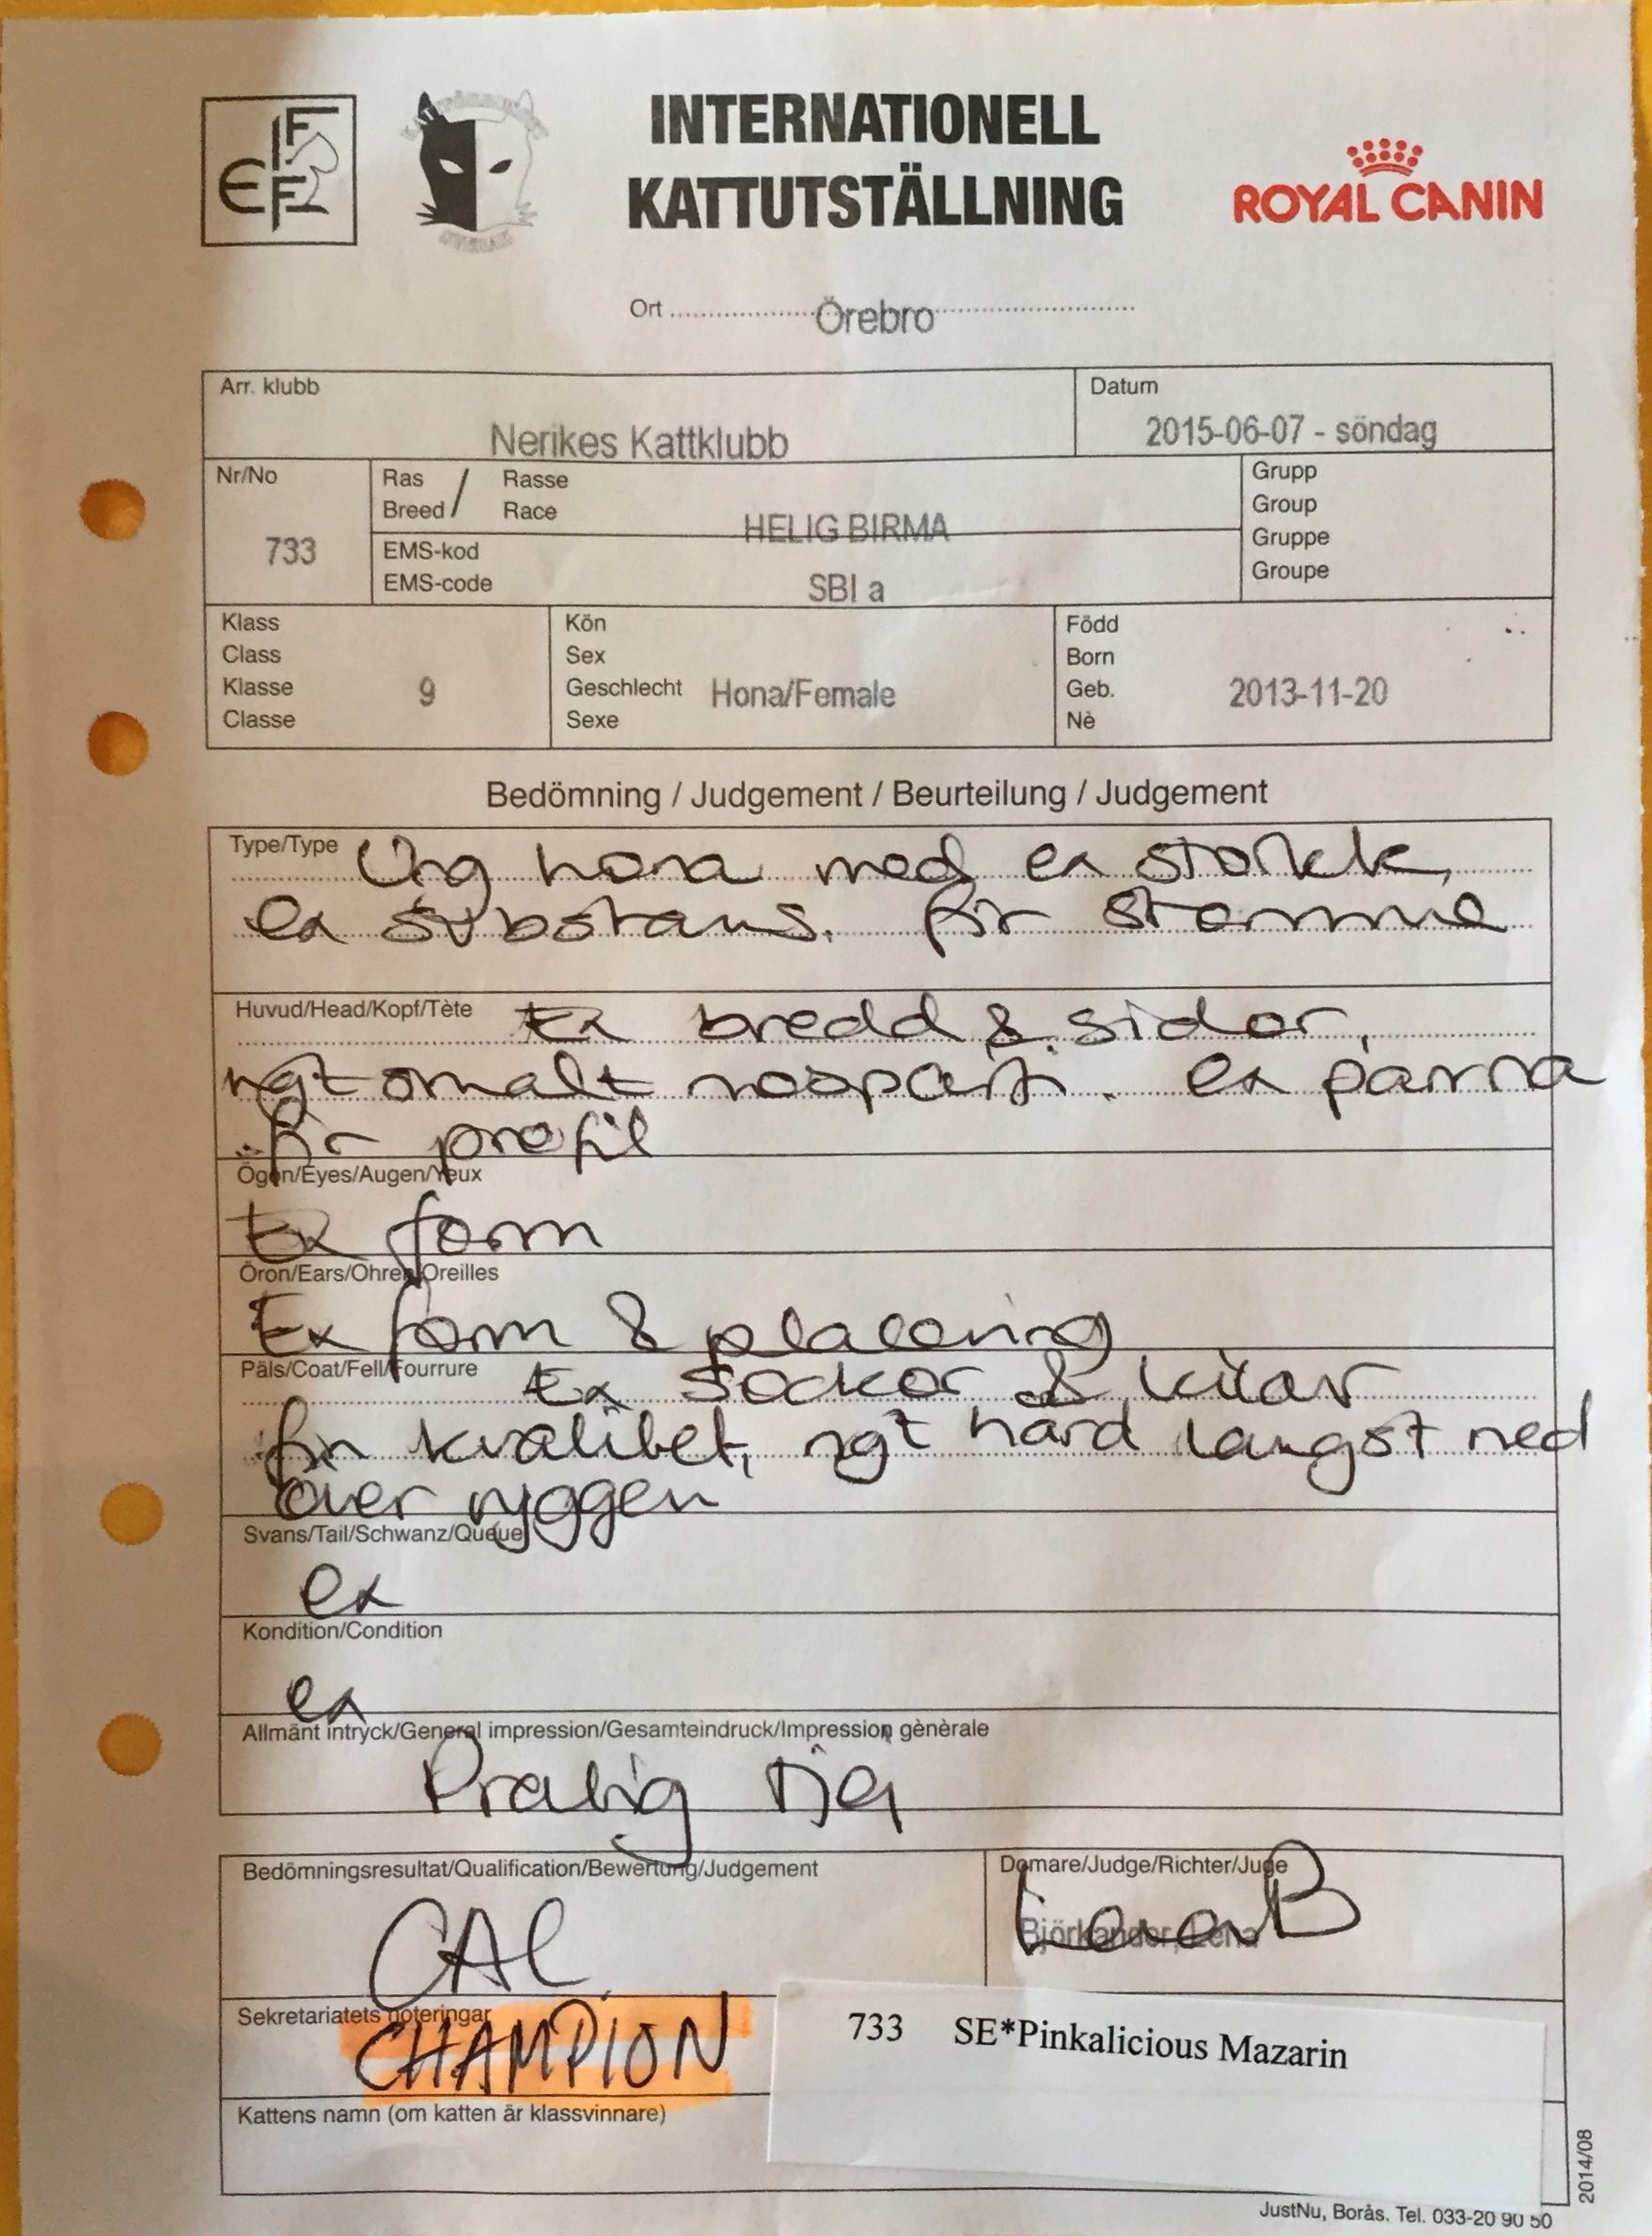 FIFE
INTERNATIONELL
KATTUTSTÄLLNING
ROYAL CANIN
Ort Örebro
Arr. klubb
Nerikes Kattklubb
Datum
2015-06-07 - söndag
Nr/No
733
Ras / Rasse
Breed / Race
HELIG BIRMA
EMS-kod
EMS-code
SBI a
Grupp
Group
Gruppe
Groupe
Klass
Class
Klasse
Classe
9
Kön
Sex
Geschlecht
Sexe
Hona/Female
Född
Born
Geb.
Nè
2013-11-20
Bedömning / Judgement / Beurteilung / Judgement
Type/Type Ung hona med ex storlek,
ex substans. fin stomme
Huvud/Head/Kopf/Tète Ex bredd & sidor,
ngt smalt nosparti. ex panna
fin profil
Ögon/Eyes/Augen/Yeux
Ex form
Öron/Ears/Ohren/Oreilles
Ex form & placering
Päls/Coat/Fell/Fourrure Ex sockor & kilar
fin kvalitet, ngt hård längst ned
över ryggen
Svans/Tail/Schwanz/Queue
ex
Kondition/Condition
ex
Allmänt intryck/General impression/Gesamteindruck/Impression gènèrale
Präktig tjej
Bedömningsresultat/Qualification/Bewertung/Judgement
CAC
Domare/Judge/Richter/Juge
Björkander, Lena
Lena B
Sekretariatets noteringar
CHAMPION
733 SE*Pinkalicious Mazarin
Kattens namn (om katten är klassvinnare)
2014/08
JustNu, Borås. Tel. 033-20 90 50